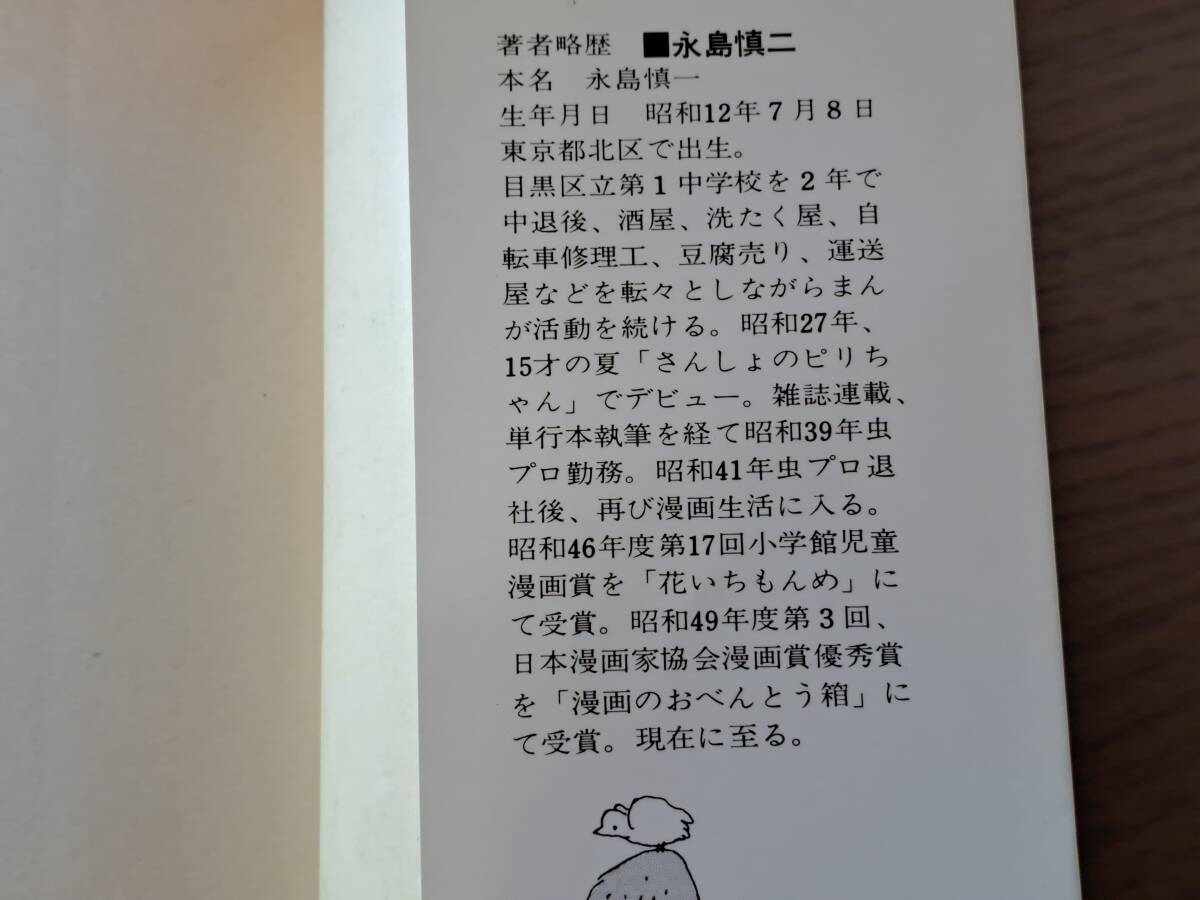 著者略歴　■永島慎二
本名　永島慎一
生年月日　昭和12年7月8日
東京都北区で出生。
目黒区立第1中学校を2年で
中退後、酒屋、洗たく屋、自
転車修理工、豆腐売り、運送
屋などを転々としながらまん
が活動を続ける。昭和27年、
15才の夏「さんしょのピリち
ゃん」でデビュー。雑誌連載、
単行本執筆を経て昭和39年虫
プロ勤務。昭和41年虫プロ退
社後、再び漫画生活に入る。
昭和46年度第17回小学館児童
漫画賞を「花いちもんめ」に
て受賞。昭和49年度第3回、
日本漫画家協会漫画賞優秀賞
を「漫画のおべんとう箱」に
て受賞。現在に至る。